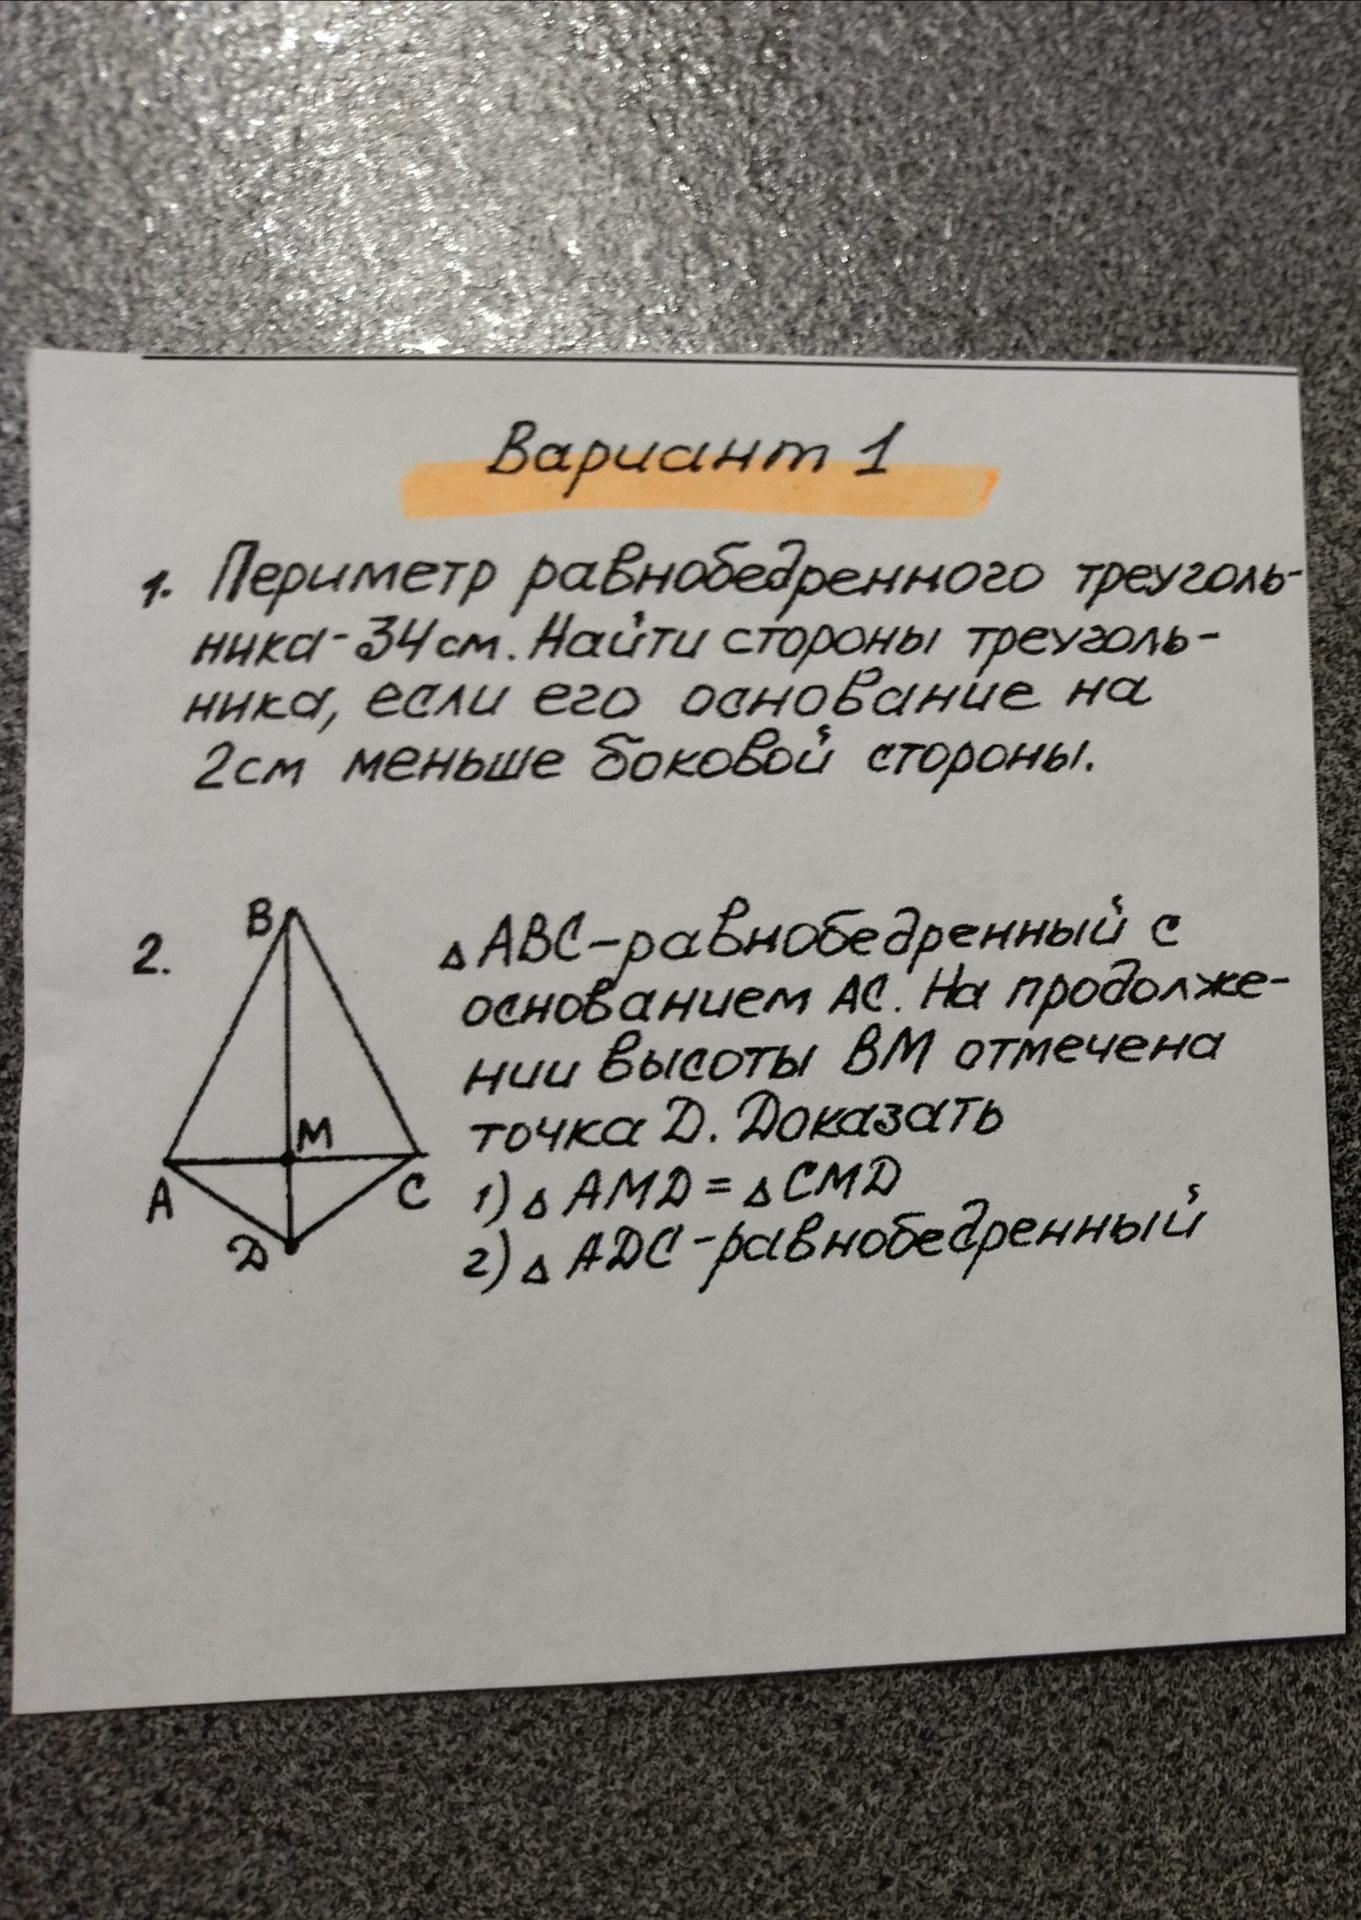 Вариант 1
1. Периметр равнобедренного треуголь-
ника - 34 см. Найти стороны треуголь-
ника, если его основание на
2см меньше боковой стороны.
2.
B
M
A
C
D
△ ABC - равнобедренный с
основанием AC. На продолже-
нии высоты BM отмечена
точка D. Доказать
1) △ AMD = △ CMD
2) △ ADC - равнобедренный